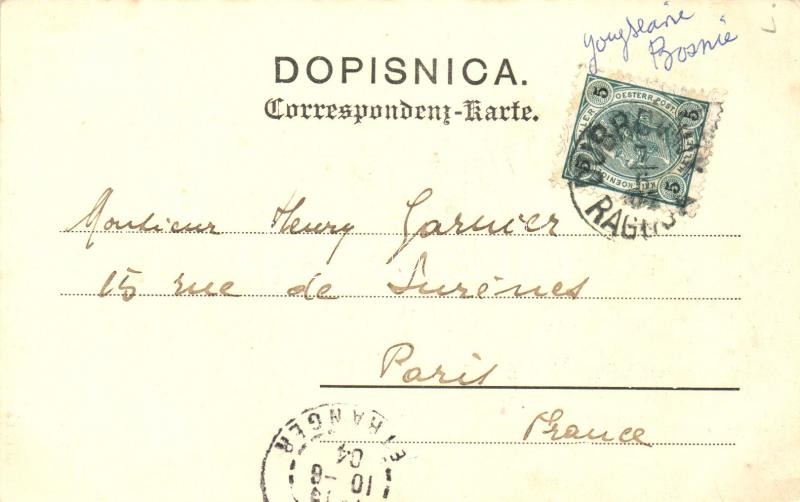 Yougslavie
Bosnie
DOPISNICA.
Correspondenz-Karte.
5 OESTERR. POST. 5
5 KAIS. KOENIGL. 5
RAGUSA
Monsieur Henry Garnier
15 rue de Surènes
Paris
France
ETRANGER
10 - 6
04